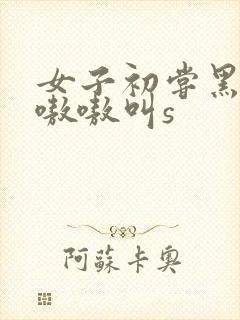 女子初尝黑
嗷嗷叫s
阿蘇卡奥